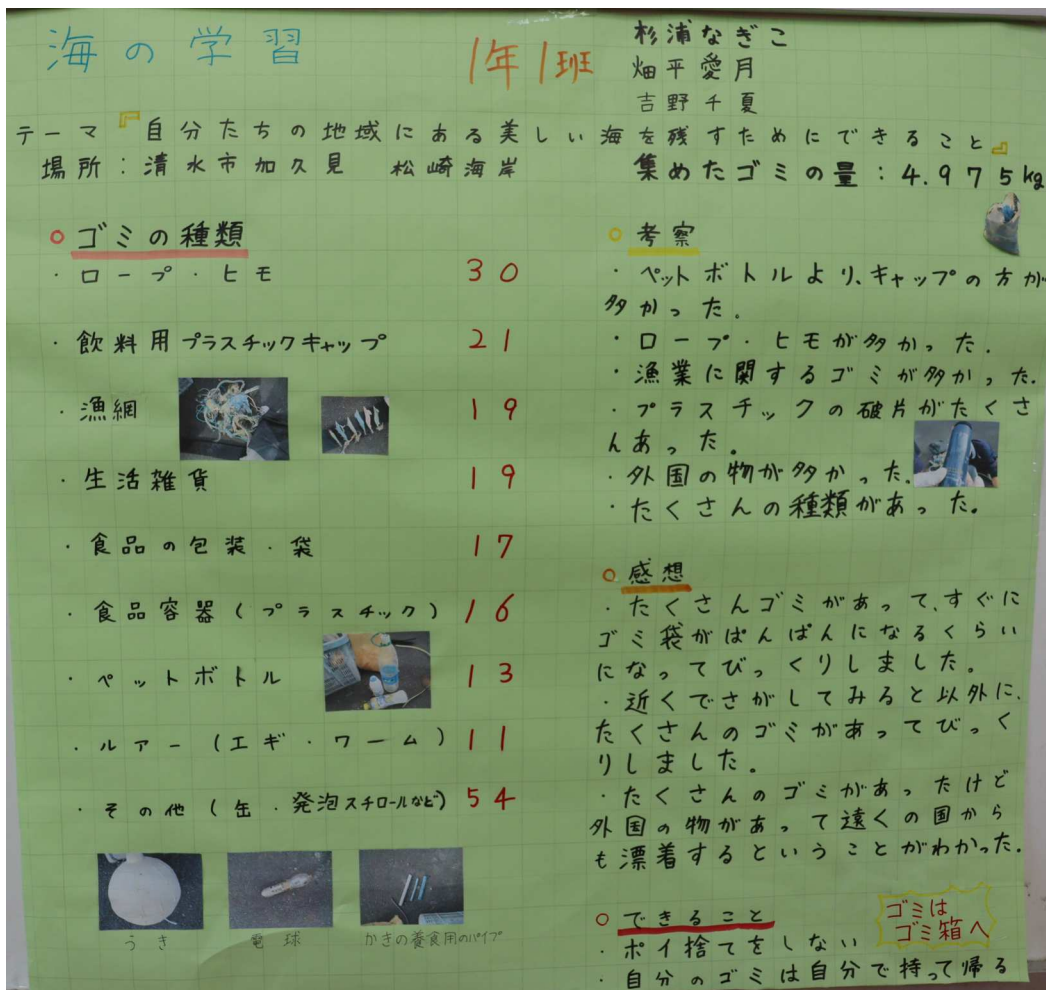 海の学習
1年1班
杉浦なぎこ
畑平愛月
吉野千夏
テーマ『自分たちの地域にある美しい海を残すためにできること』
場所：清水市加久見 松崎海岸
集めたゴミの量：4.975kg
○ゴミの種類
・ロープ・ヒモ 30
・飲料用プラスチックキャップ 21
・漁網 19
・生活雑貨 19
・食品の包装・袋 17
・食品容器(プラスチック) 16
・ペットボトル 13
・ルアー(エギ・ワーム) 11
・その他(缶・発泡スチロールなど) 54
うき
電球
かきの養食用のパイプ
○考察
・ペットボトルより、キャップの方が
多かった．
・ロープ・ヒモが多かった．
・漁業に関するゴミが多かった．
・プラスチックの破片がたくさ
んあった。
・外国の物が多かった．
・たくさんの種類があった。
○感想
・たくさんゴミがあって、すぐに
ゴミ袋がぱんぱんになるくらい
になってびっくりしました。
・近くでさがしてみると以外に、
たくさんのゴミがあってびっく
りしました。
・たくさんのゴミがあったけど
外国の物があって遠くの国から
も漂着するということがわかった．
○できること
・ポイ捨てをしない
・自分のゴミは自分で持って帰る
ゴミは
ゴミ箱へ